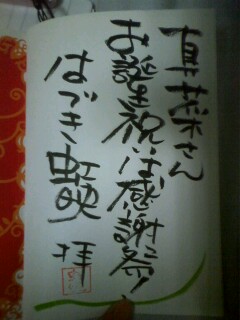 真菜さん
お誕生祝いは感謝祭!
はづき虹映 拝